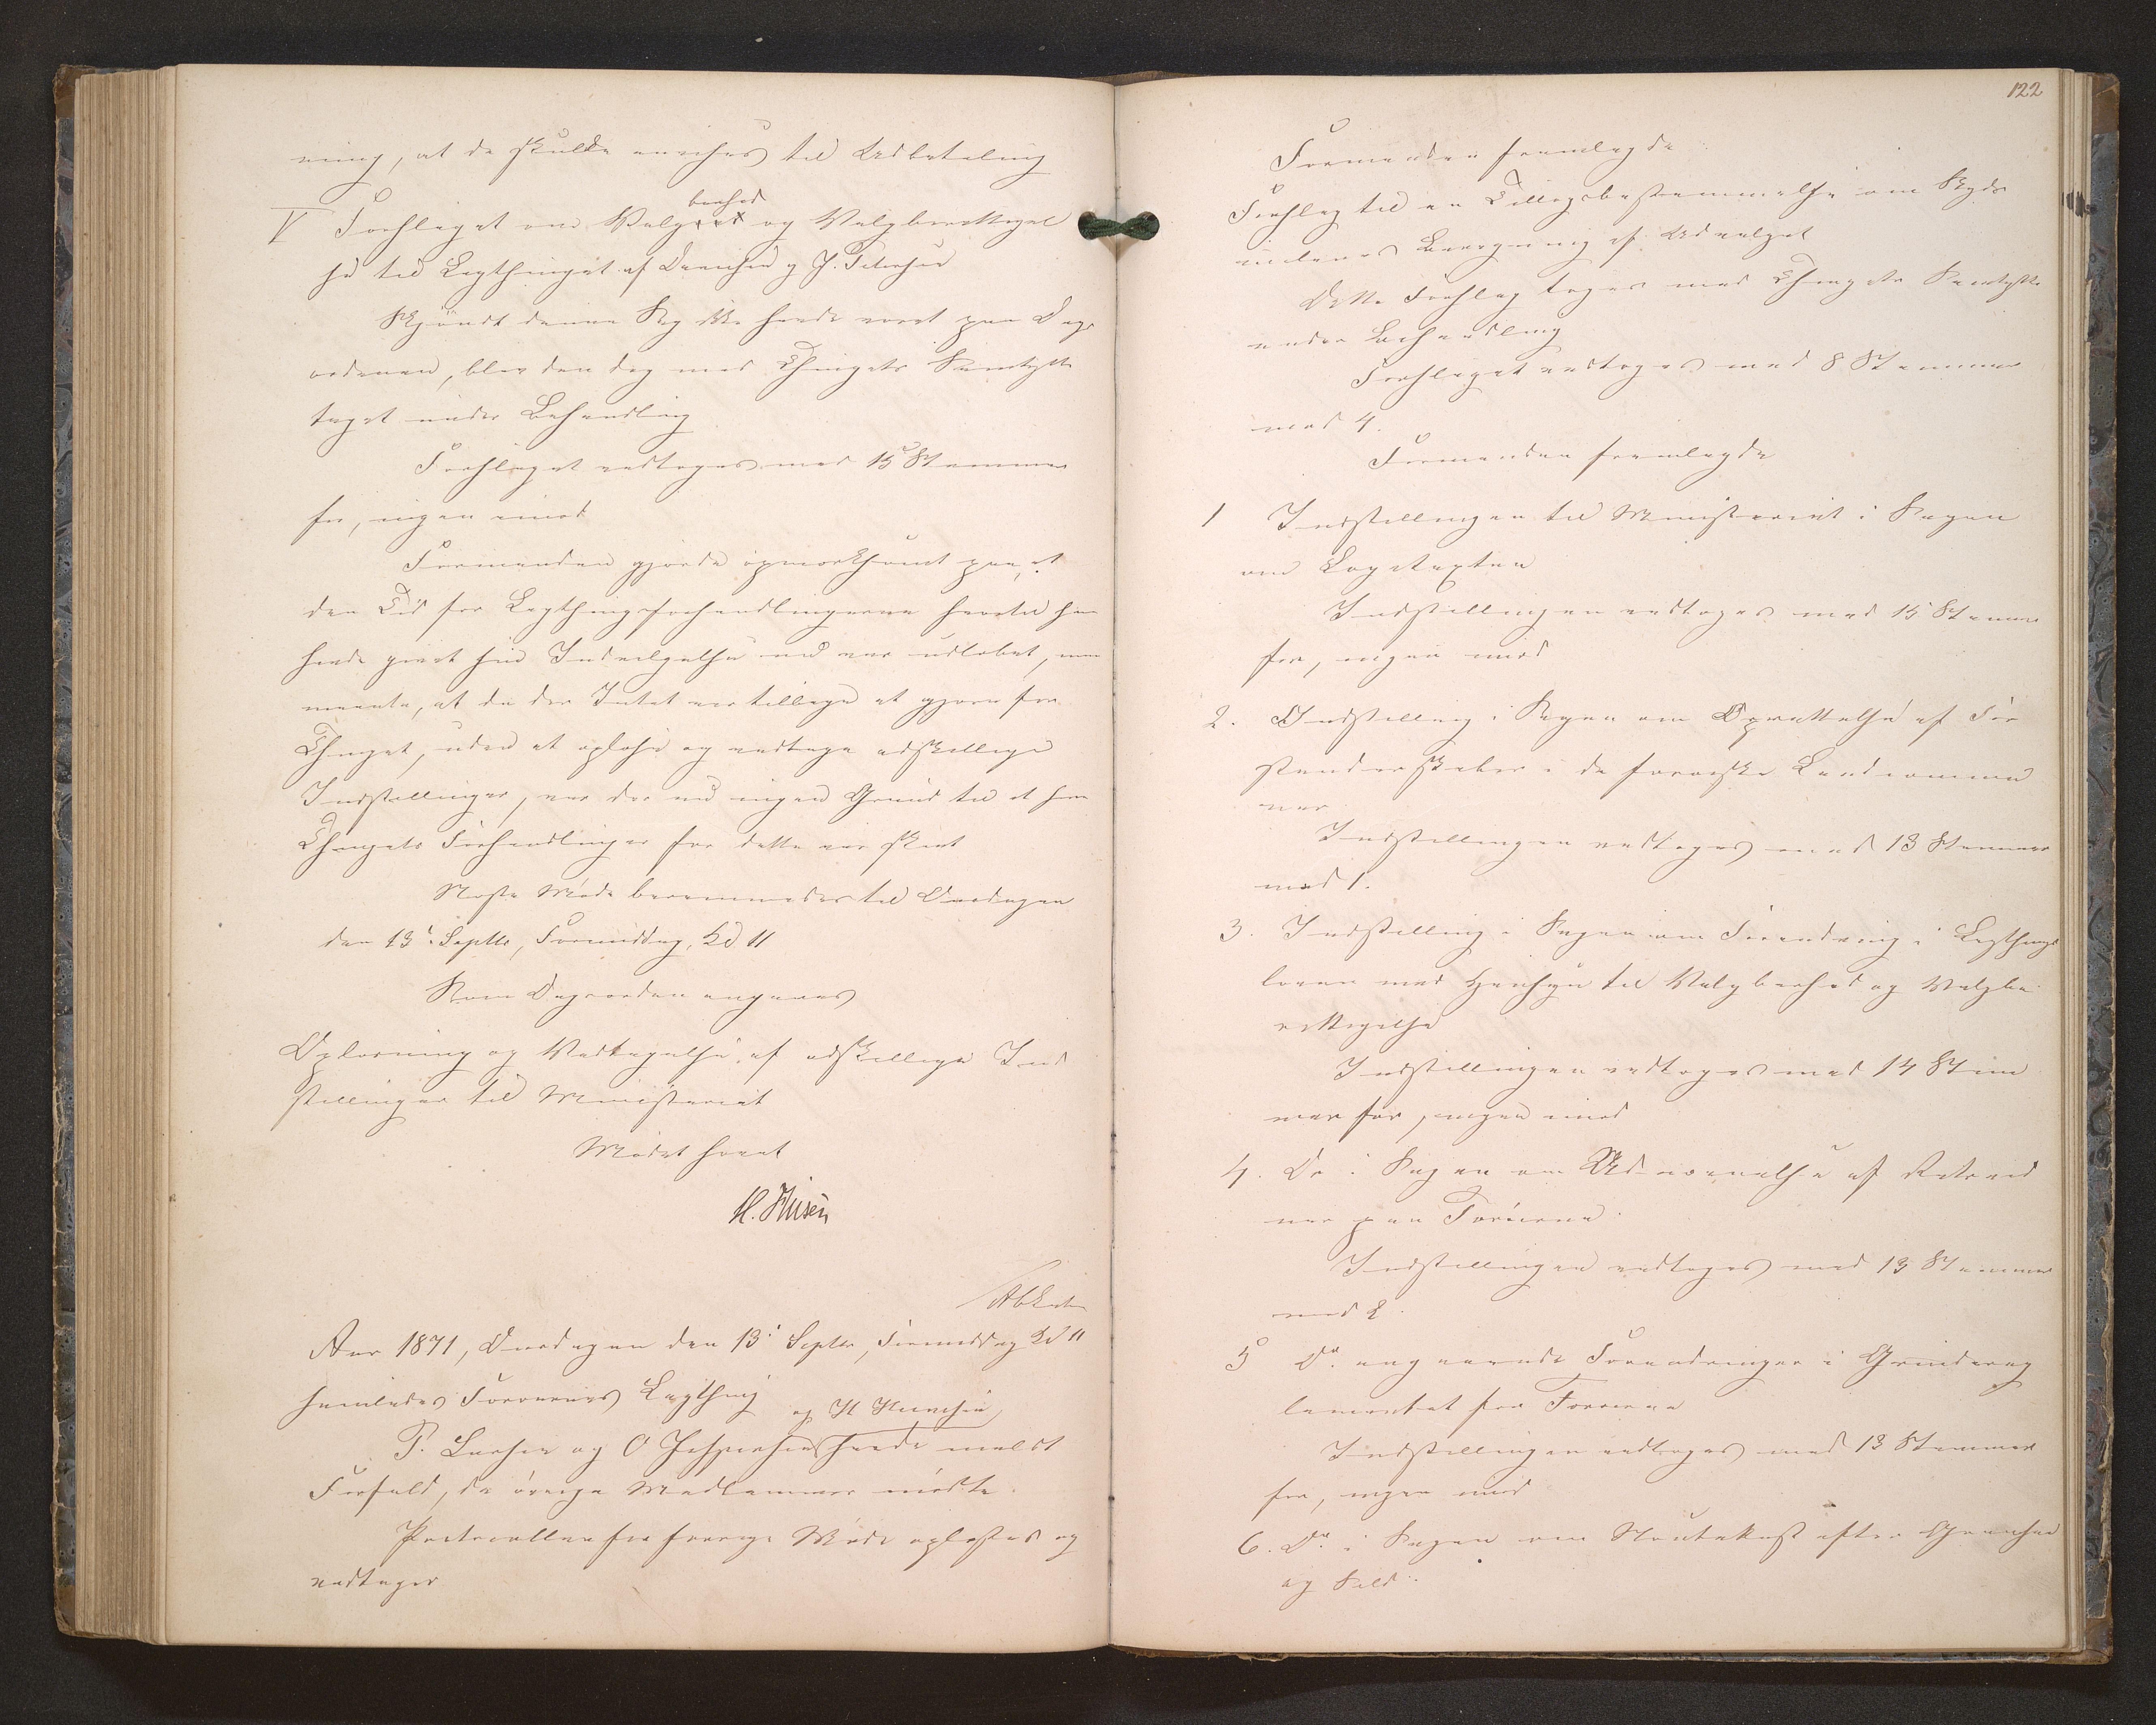 ning, at de skulde anvises til Udbetaling
V Forslaget om Valgbarhed og Valgberettigel
se til Lagthinget af Davidsen og J. Petersen
Skjøndt denne Sag ikke havde været paa Dags
ordenen, blev den dog med Thingets Samtykke
taget under Behandling
Forslaget vedtoges med 15 Stemmer
for, ingen imod
Formanden gjorde opmærksomt paa, at
den Tid for Lagthingsforhandlingerne hvortil han
havde givet sin Indvilgelse nu var udløbet, men
meente, at da der Intet var tilbage at gjøre for
Thinget, uden at oplæse og vedtage adskillige
Indstillinger, var der nu ingen Grund til at hæve
Thingets Forhandlinger før dette var skeet
Næste Møde berammedes til Onsdagen
den 13de Septbr, Formiddag Kl 11
Som Dagsorden angaves
Oplæsning og Vedtagelse af adskillige Ind
stillinger til Ministeriet
Mødet hævet
H. Finsen
Aar 1871, Onsdagen den 13de Septbr, Formiddag Kl 11
samledes Færøernes Lagthing
og H
P. Larsen og O Jespersen havde meldt
Forfald, de øvrige Medlemmer mødte.
Protocollen for forrige Møde oplæstes og
vedtoges
122
Formanden fremlagde
Forslag til en Tillægsbestemmelse om Skyds
af Udvalget
Dette Forslag toges med Thingets Samtykke
under Behandling
Forslaget vedtoges med 8 Stemmer
mod 4.
Formanden fremlagde
1 Indstillingen til Ministeriet i Sagen
om
Indstillingen vedtoges med 15 Stemmer
for, ingen imod
2. Indstilling i Sagen om Oprettelse af For
standerskaber i de færøiske Landcommu
ner
Indstillingen vedtoges med 13 Stemmer
mod 1.
3. Indstilling i Sagen om Forandring i Lagthings
loven med Hensyn til Valgbarhed og Valgbe
rettigelse
Indstillingen vedtoges med 14 Stem
mer for, ingen imod
4. Do i Sagen om Udnævnelse af
paa Færøerne.
Indstillingen vedtoges med 13 Stemmer
mod 2.
5 Do. angaaende Forandringer i Grindereg
lementet for Færøerne
Indstillingen vedtoges med 13 Stemmer
for, ingen imod
6. Do. i Sagen om Notekast efter
og Sild.